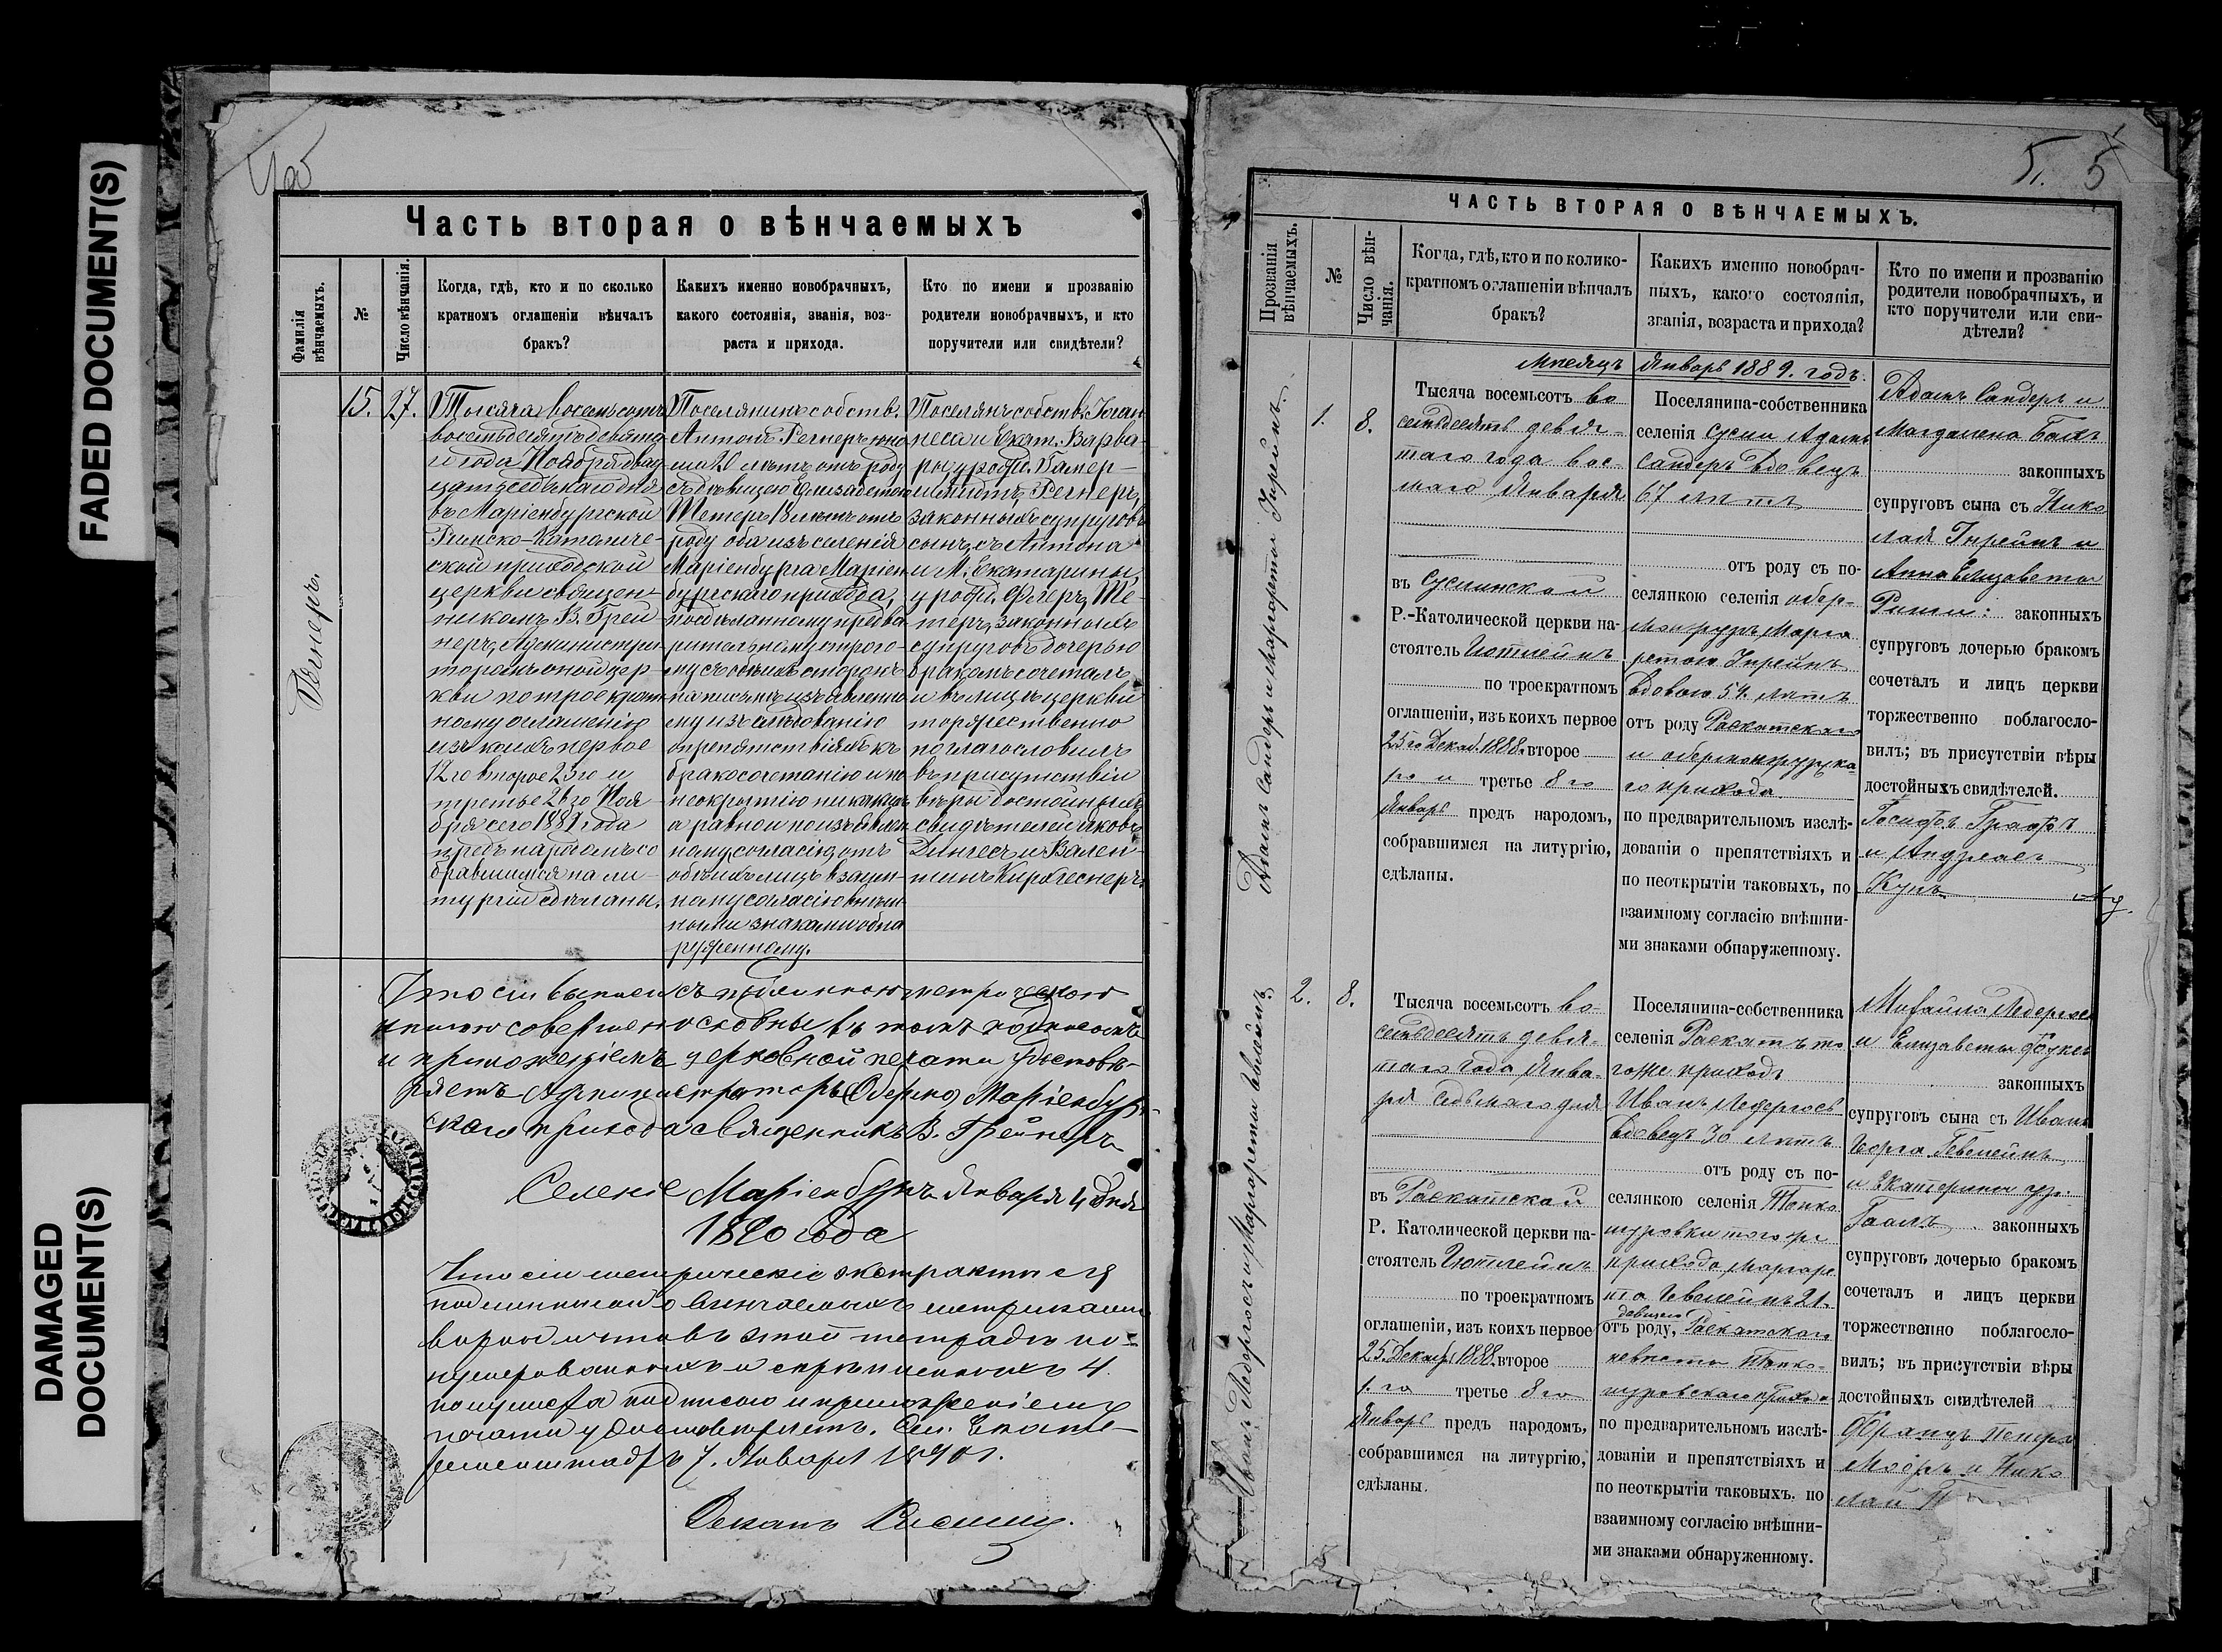 FADED DOCUMENT(S)
DAMAGED
DOCUMENT(S)
Часть вторая о вѣнчаемыхъ
Фамилія
вѣнчаемыхъ.
№
Число вѣнчанія.
Когда, гдѣ, кто и по сколько
кратномъ оглашеніи вѣнчалъ
бракъ?
Какихъ именно новобрачныхъ,
какого состоянія, званія, воз-
раста и прихода.
Кто по имени и прозванію
родители новобрачныхъ, и кто
поручители или свидѣтели?
15.
27.
Тысяча восемьсотъ
восемьдесятъ девята-
го года Ноября двад-
цать седьмаго дня
въ Маріенбургской
Римско-Католиче-
ской приходской
церкви священ-
никомъ В. Грей-
неръ, Администра-
торомъ оной цер-
кви по троекрат-
ному оглашенію
изъ коихъ первое
12го второе 23го и
третье 26го Ноя-
бря сего 1889 года
предъ народомъ со-
бравшимся на ли-
тургіи сдѣланы.
Поселянинъ собств.
Антонъ Регнеръ юно-
ша 20 лѣтъ отъ роду
съ дѣвицею Елизаветою
Шетеръ 18 лѣтъ отъ
роду оба изъ селенія
Маріенбурга Маріен-
бургскаго прихода,
по сдѣланному предва-
рительному строго-
му съ обѣихъ сторонъ
на письмѣ изъявленно-
му изслѣдованію
о препятствіяхъ къ
бракосочетанію и по
неокрытію никакихъ
а равно и по изъявлен-
ному согласію отъ
обѣихъ лицъ взаим-
ному согласію внѣш-
ными знаками обна-
руженному.
Поселянъ собств. Іоган-
неса и Екат. Варва-
ры урожд. Гамер-
шмидтъ, Регнеръ,
законныхъ супруговъ
сынъ, съ Антона
и М. Екатарины,
урожд. Флеръ, Ше-
теръ, законныхъ
супруговъ дочерью
бракомъ сочеталъ
и въ лицѣ церкви
торжественно
поблагословилъ
въ присутствіи
вѣры достойныхъ
свидѣтелей Яковъ
Дингесъ и Вален-
тинъ Кирхгеснеръ.
Регнеръ.
Что сіи выписи съ подлинною метрическою
книгою совершенно сходны въ томъ подписомъ
и приложеніемъ церковной печати удостовѣ-
ряетъ Администраторъ Оберно Маріенбург-
скаго прихода священникъ В. Грейнеръ
Селеніе Маріенбургъ Января 4 дня
1890 года
Что сіи метрическіе экстракты съ
подлинными о вѣнчаемыхъ метриками
вѣрны и что въ этой тетради по-
нумерованныхъ и скрѣпленныхъ 4.
полулиста подписью и приложеніемъ
печати удостовѣряетъ. Сел. Екате-
риненштадтъ 7. Января 1890 г.
Деканъ
5. 5
ЧАСТЬ ВТОРАЯ О ВѢНЧАЕМЫХЪ.
Прозванія
вѣнчаемыхъ.
№
Число вѣн-
чанія.
Когда, гдѣ, кто и по колико-
кратномъ оглашеніи вѣнчалъ
бракъ?
Какихъ именно новобрач-
ныхъ, какого состоянія,
званія, возраста и прихода?
Кто по имени и прозванію
родители новобрачныхъ, и
кто поручители или сви-
дѣтели?
Мѣсяцъ Январь 1889. годъ.
Адамъ Сандеръ и Маргарета Гнрейнъ.
1.
8.
Тысяча восемьсотъ во-
семьдесятъ девя-
таго года вось-
маго Января
въ Суслинской
Р.-Католической церкви на-
стоятель Гютлейнъ
по троекратномъ
оглашеніи, изъ коихъ первое
25го Декаб. 1888. второе
1го и третье 8го
Январь предъ народомъ,
собравшимся на литургію,
сдѣланы.
Поселянина-собственника
селенія Сусли Адамъ
Сандеръ вдовецъ
67 лѣтъ
отъ роду съ по-
селянкою селенія Обер-
монжуръ Марга-
ретою Гнрейнъ
вдовою 54. лѣтъ
отъ роду Раскатскаго
и обермонжурска-
го прихода
по предварительномъ изслѣ-
дованіи о препятствіяхъ и
по неоткрытіи таковыхъ, по
взаимному согласію внѣшни-
ми знаками обнаруженному.
Адамъ Сандеръ и
Магдалена Бахъ
законныхъ
супруговъ сына съ Нико
лая Гнрейнъ и
Анна Елизавета
законныхъ
супруговъ дочерью бракомъ
сочеталъ и лицъ церкви
торжественно поблагосло-
вилъ; въ присутствіи вѣры
достойныхъ свидѣтелей.
Іосифъ Графъ
и Андреасъ
Кунъ
Иванъ Ледергосъ и Маргарета Гевелейнъ.
2.
8.
Тысяча восемьсотъ во-
семьдесятъ девя-
таго года Янва-
ря седьмаго дня
въ Раскатской
Р. Католической церкви на-
стоятель Гютлейнъ
по троекратномъ
оглашеніи, изъ коихъ первое
25. Декабр. 1888. второе
1.го третье 8го
Январь предъ народомъ,
собравшимся на литургію,
сдѣланы.
Поселянина-собственника
селенія Раскатъ то-
гоже приходъ
Иванъ Ледергосъ
вдовецъ 30 лѣтъ
отъ роду съ по-
селянкою селенія Тонко
шуровки того же
прихода, Маргаре
та Гевелейнъ 21.
дѣвицею
отъ роду, Раскатскаго
невѣста Тонко-
шуровскаго прихода
по предварительномъ изслѣ-
дованіи и препятствіяхъ и
по неоткрытіи таковыхъ. по
взаимному согласію внѣшни-
ми знаками обнаруженному.
Михаила Ледергосъ
и Елизаветы Фуксъ
законныхъ
супруговъ сына съ Иванъ
Георга Гевелейнъ
и Екатерины ур.
Гаалъ законныхъ
супруговъ дочерью бракомъ
сочеталъ и лицъ церкви
торжественно поблагосло-
вилъ; въ присутствіи вѣры
достойныхъ свидѣтелей
Францъ Петеръ
Мооръ и Нико
лай